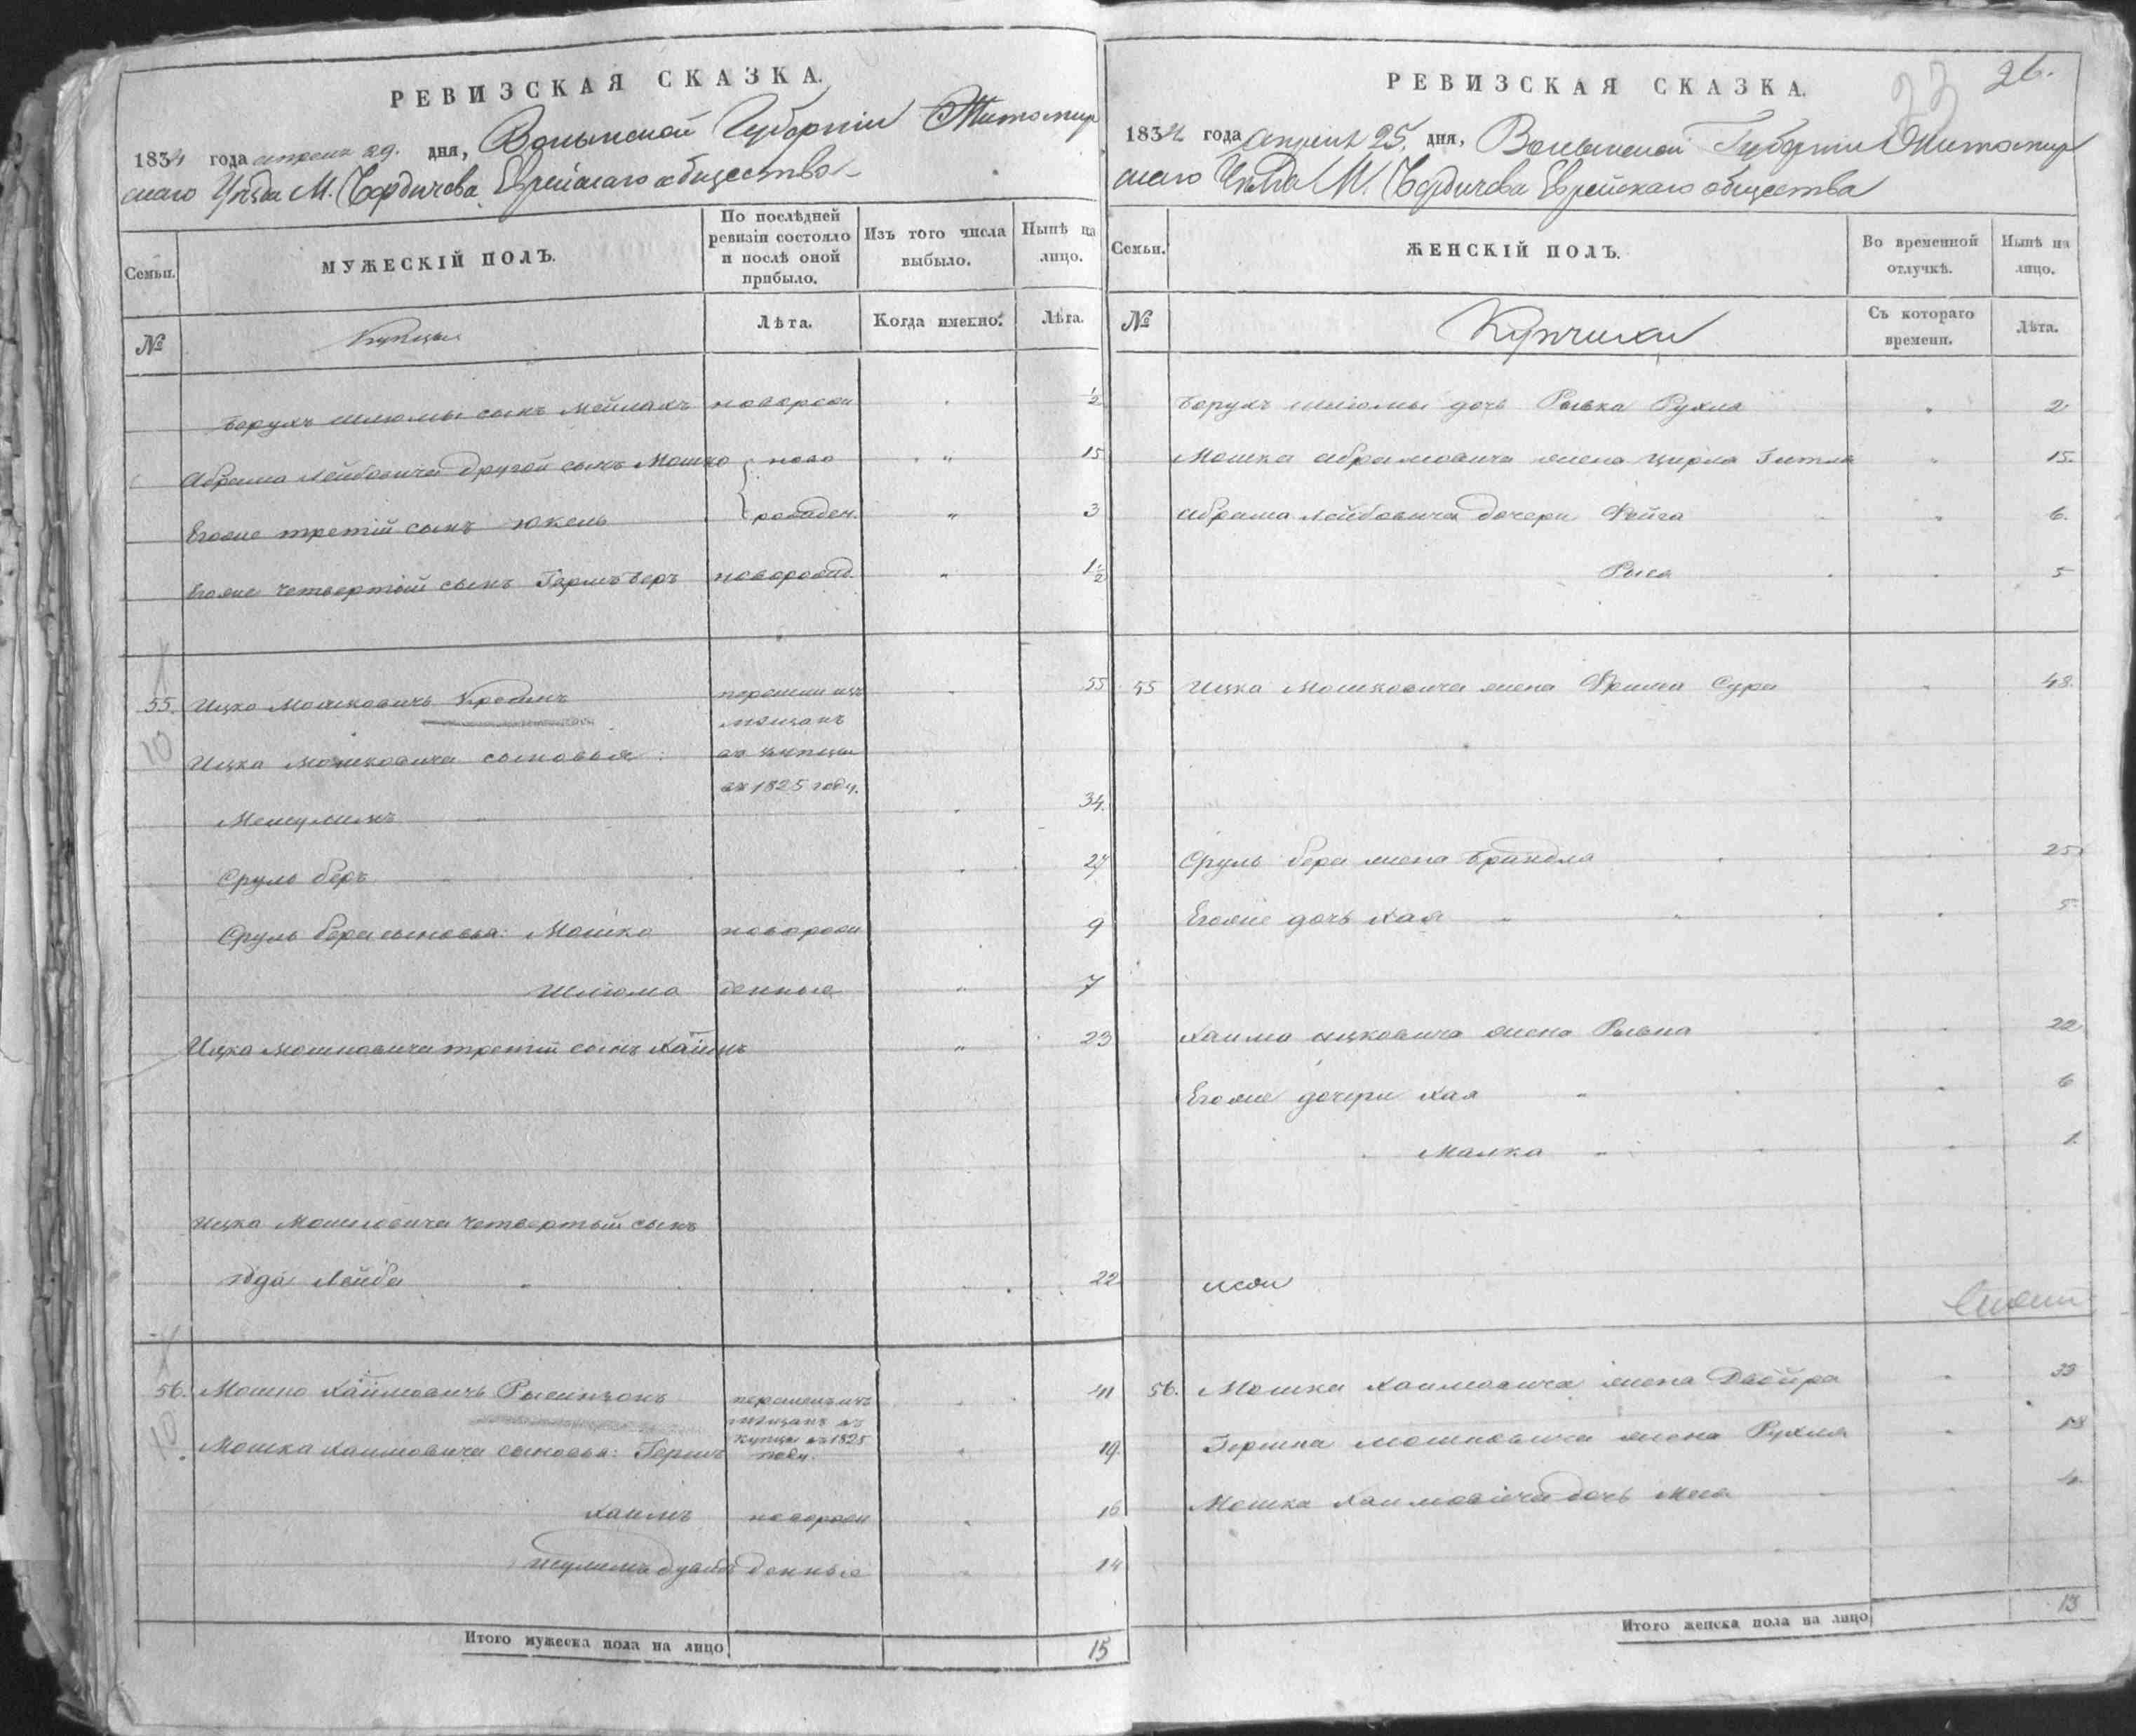 РЕВИЗСКАЯ СКАЗКА.
1834 года апреля 29. дня, Волынской Губерніи Житомир
скаго Уѣзда М. Бердичева Еврейскаго общества
Семьи.
МУЖЕСКІЙ ПОЛЪ.
По послѣдней ревизіи состояло и послѣ оной прибыло.
Изъ того числа выбыло.
Нынѣ на лицо.
№
Купцы
Лѣта.
Когда именно.
Лѣта.
Борухъ Шлюмы сынъ Мейлахъ новорожд ½
Абрама Лейбовича другой сынъ Мошко ново " 15
Егоже третій сынъ Юкель рожден. " 3
Егоже четвертый сынъ Гершъ Беръ новорожд. " 1½
55. Ицко Мошковичъ перешли изъ 55
мѣщанъ
Ицка Мошковича сыновья: въ купцы
въ 1825 году.
Мешулимъ 34.
Сруль Беръ 27
Сруль Бера сыновья: Мошко новорож 9
Шлюма денные " 7
Ицка Мошковича третій сынъ Хаимъ " 23
Ицка Мошковича четвертый сынъ
Юда Лейба 22
56. Мошко Хаимовичъ перешелъ изъ 41
мѣщанъ въ
купцы въ 1825
Мошка Хаимовича сыновья: Гершъ году. 19.
Хаимъ новорож 16
денные 14
Итого мужеска пола на лицо 15
26.
23
РЕВИЗСКАЯ СКАЗКА.
1834 года апреля 25. дня, Волынской Губерніи Житомир
скаго Уѣзда М. Бердичева Еврейскаго общества
Семьи.
ЖЕНСКІЙ ПОЛЪ.
Во временной отлучкѣ.
Нынѣ на лицо.
№
Купчихи
Съ котораго времени.
Лѣта.
Борухъ Шлюмы дочь Рывка Рухля 2
Мошка Абрамовича жена Цирля Гитля " 15.
Абрама Лейбовича дочери Фейга " 6.
Рыся 5
55 Ицка Мошковича жена Фрима Сура 48.
Сруль Бера жена Брандля 25
Егоже дочь Хая 5.
Хаима Ицковича жена Рывка 22
Егоже дочери Хая 6
Малка 1.
56. Мошка Хаимовича жена Двойра 39
Гершка Мошковича жена Рухля 18
Мошка Хаимовича дочь 4.
Итого женска пола на лицо 13